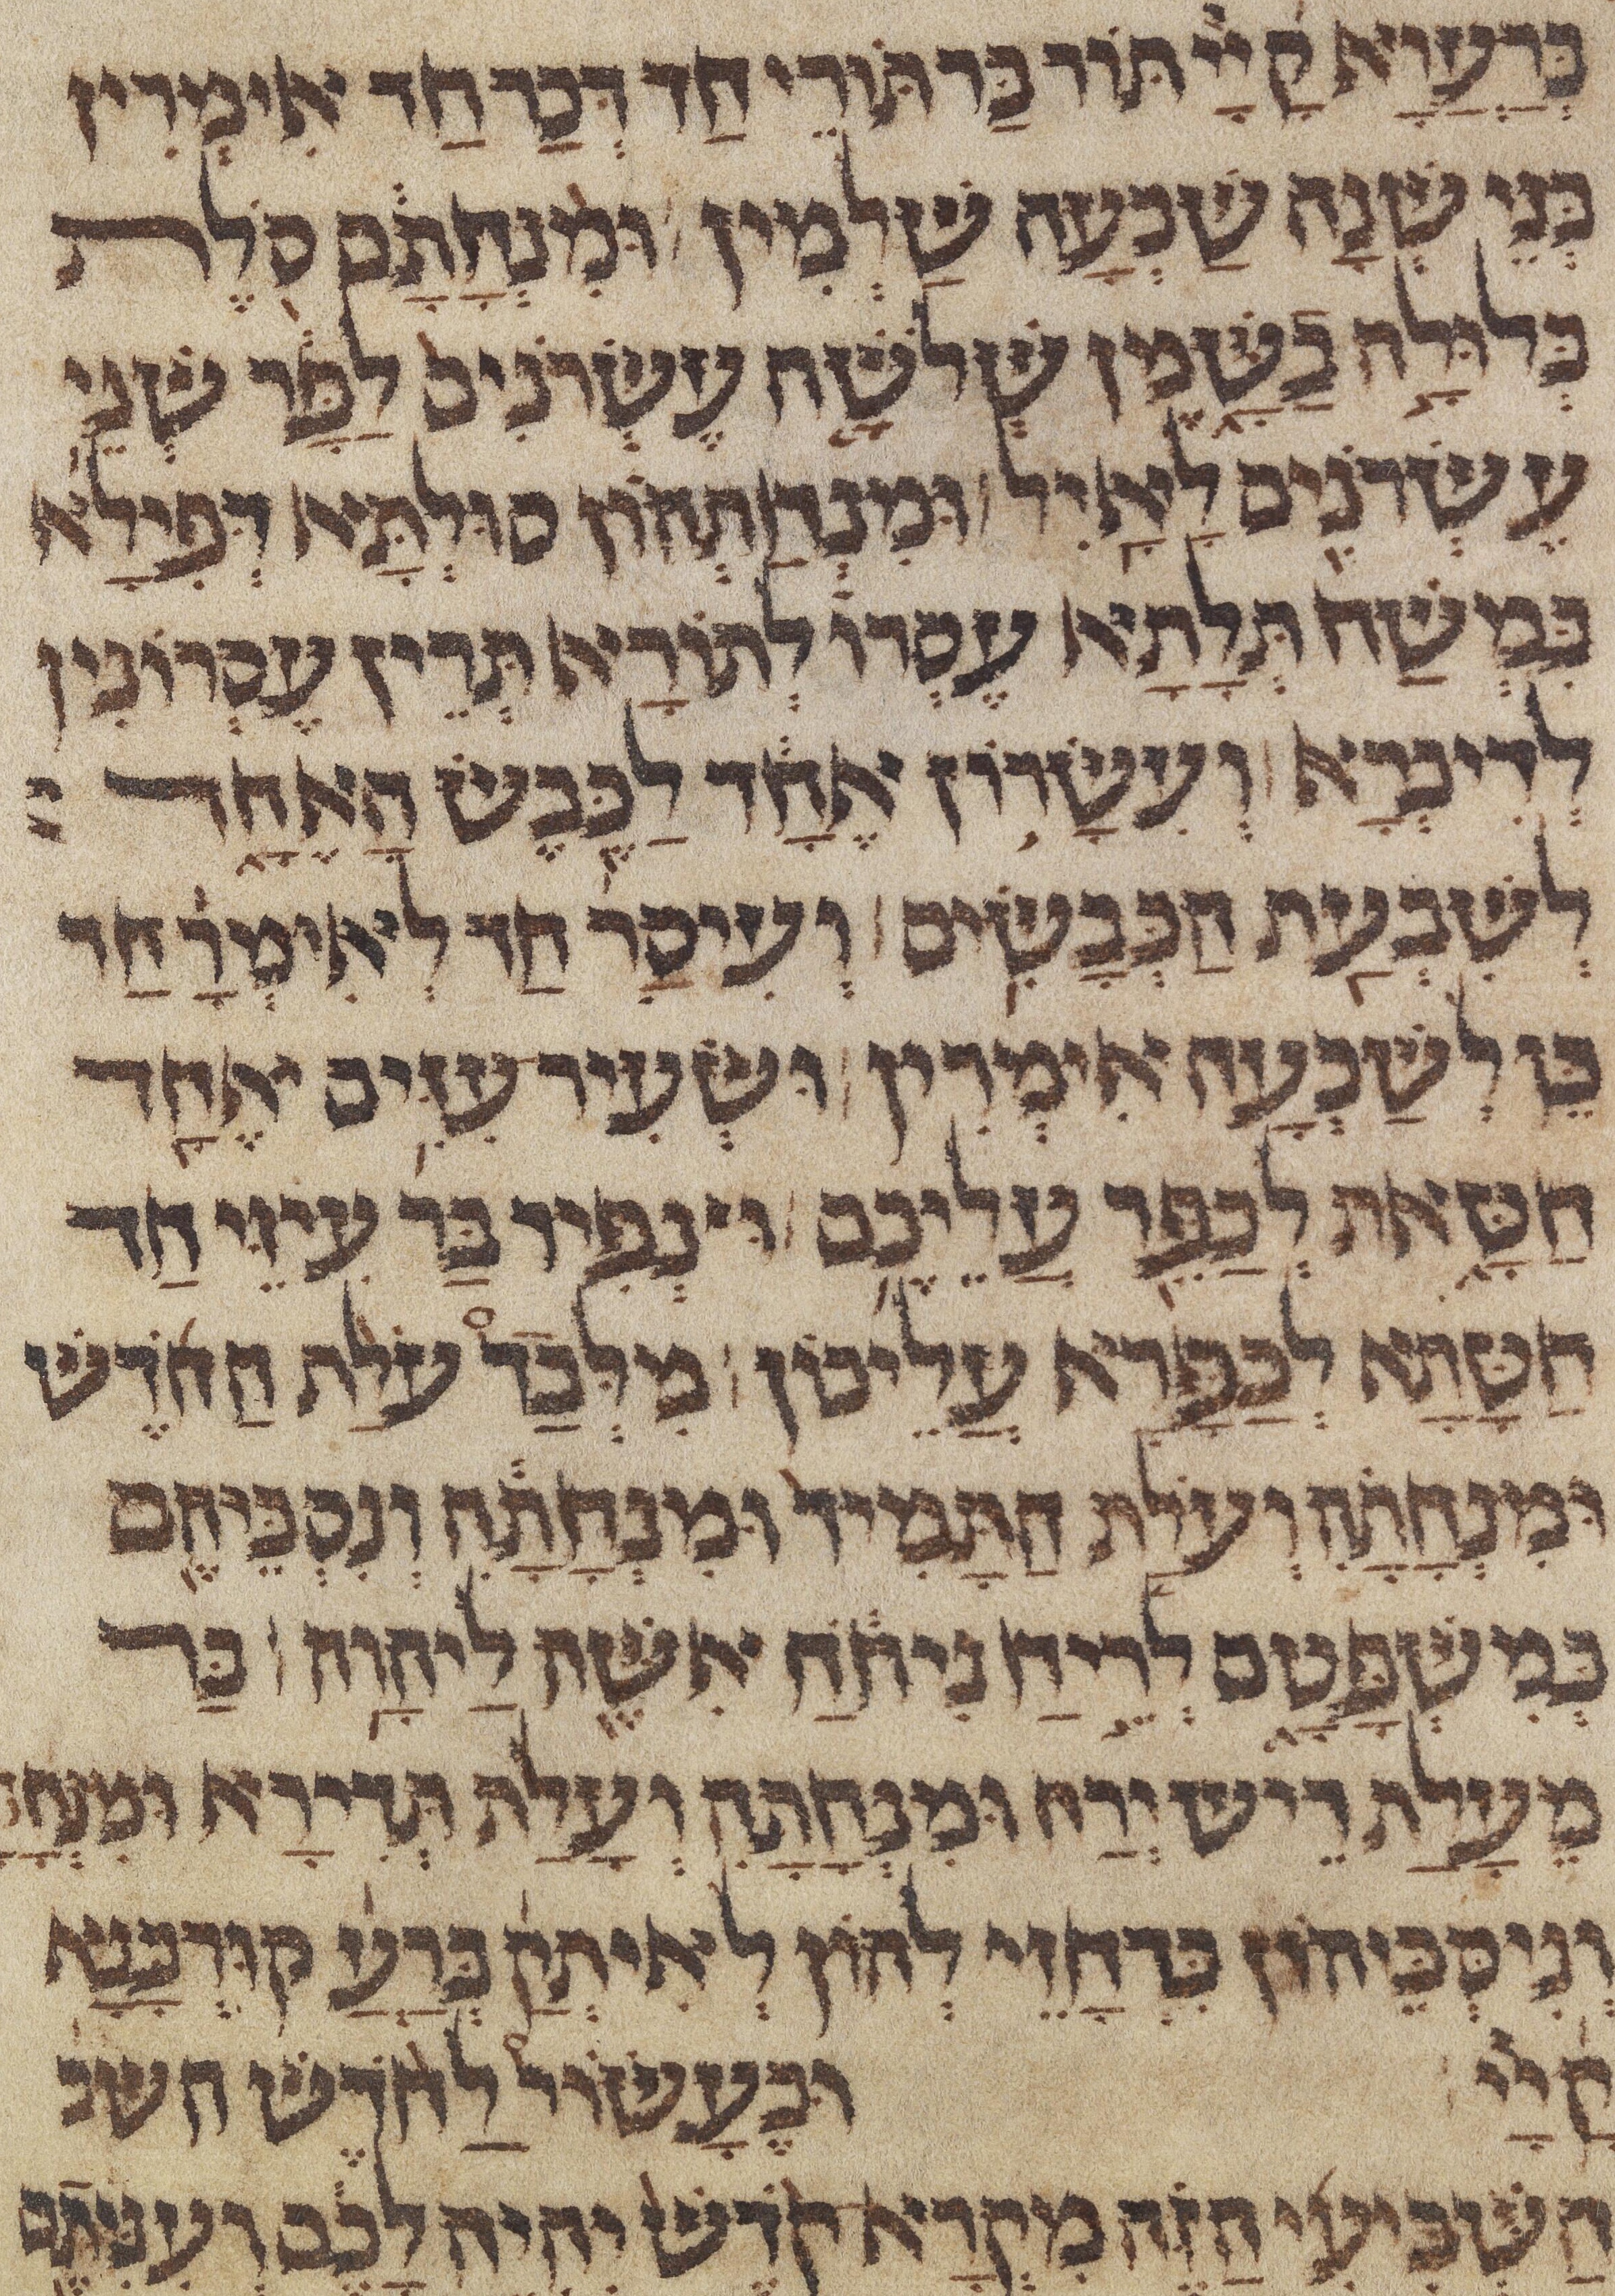 בְּרַעֲוָא קֳדָם יְיָ תּוֹר בַּר תּוֹרֵי חַד דְּכַר חַד אִימְרִין
בְּנֵי שְׁנָה שַׁבְעָה שַׁלְמִין וּמִנְחָתָם סֹלֶת
בְּלוּלָה בַשָּׁמֶן שְׁלֹשָׁה עֶשְׂרֹנִים לַפָּר שְׁנֵי
עֶשְׂרֹנִים לָאָיִל וּמִנְחַתְהוֹן סוּלְתָּא דְּפִילָא
בִּמְשַׁח תְּלָתָא עֶסְרוֹ לְתוֹרָא תְּרֵין עֶסְרוֹנִין
לְדִיכְרָא וְעִשָּׂרוֹן אֶחָד לַכֶּבֶשׂ הָאֶחָד
לְשִׁבְעַת הַכְּבָשִׂים וְעִיסַר חַד לְאִימְרָ חַד
כֵּן לְשַׁבְעָה אִימְרִין וּשְׂעִיר עִזִּים אֶחָד
חַטָּאת לְכַפֵּר עֲלֵיכֶם וּצְפִיר בַּר עִיזֵּי חַד
חַטָּתָא לְכַפָּרָא עֲלֵיכוֹן מִלְּבַד עֹלַת הַחֹדֶשׁ
וּמִנְחָתָהּ וְעֹלַת הַתָּמִיד וּמִנְחָתָהּ וְנִסְכֵּיהֶם
כְּמִשְׁפָּטָם לְרֵיחַ נִיחֹחַ אִשֶּׁה לַיהוָה בַּר
מֵעֲלַת רֵישׁ יְרַח וּמִנְחָתָהּ וְעָלַת תְּדִירָא וּמִנְחָת
וְנִיסְכֵּיהוֹן כִּדְחָזֵי לְהוֹן לְאִיתְקַ בְּרַעֲ קוּרְבָּנָא
קֳ יְיָ וּבֶעָשׂוֹר לַחֹדֶשׁ השב
הַשְּׁבִיעִי הַזֶּה מִקְרָא קֹדֶשׁ יִהְיֶה לָכֶם וְעִנִּיתֶם